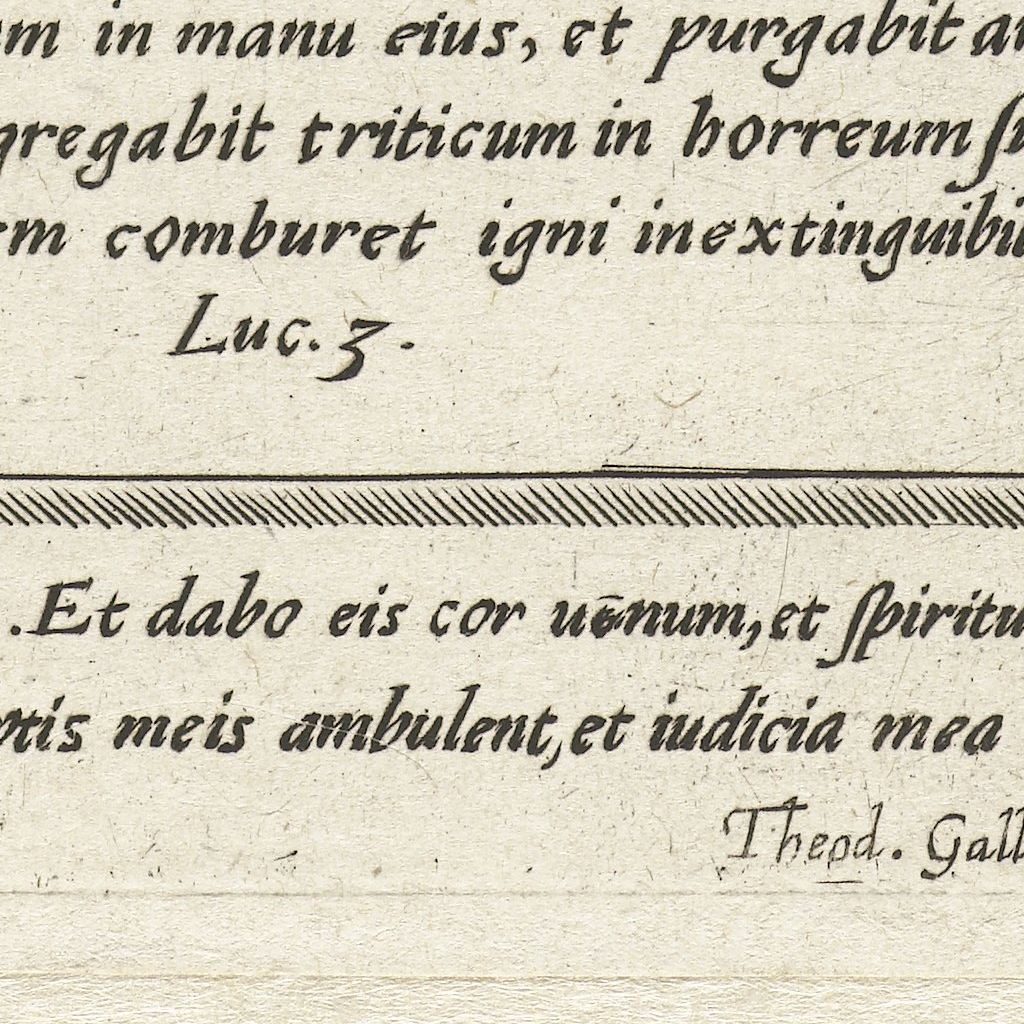 um in manu eius, et purgabit ar
gregabit triticum in horreum ſu
em comburet igni inextinguibi
Luc. 3.
. Et dabo eis cor uēnum, et ſpiritu
ptis meis ambulent, et iudicia mea
Theod. Gall